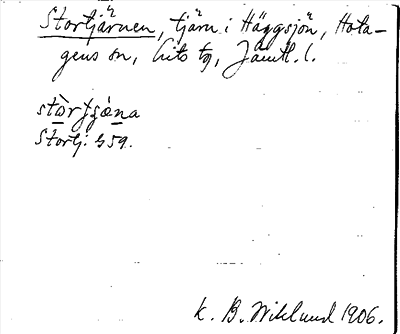 Stortjärnen, tjärn i Häggsjön, Hota-
gens sn, Lits tg, Jämtl. l.
stòrtjæ̀na
Stortj: 459.
K. B. Wiklund 1906.